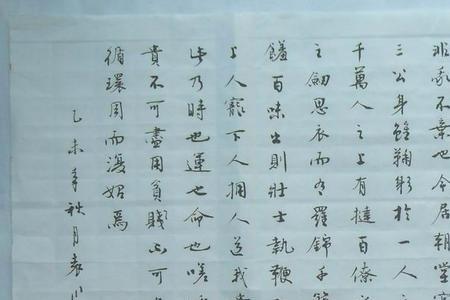 非我不棄也今居朝堂
三公身雖鞠躬於一人之
千萬人之上有撻百僚
之劍思衣而有羅錦千箱
饈百味出則壯士執鞭
上人寵下人擁人道我貴
此乃時也運也命也嗟
貴不可盡用貧賤不可
循環周而復始焉
乙未年秋月袁